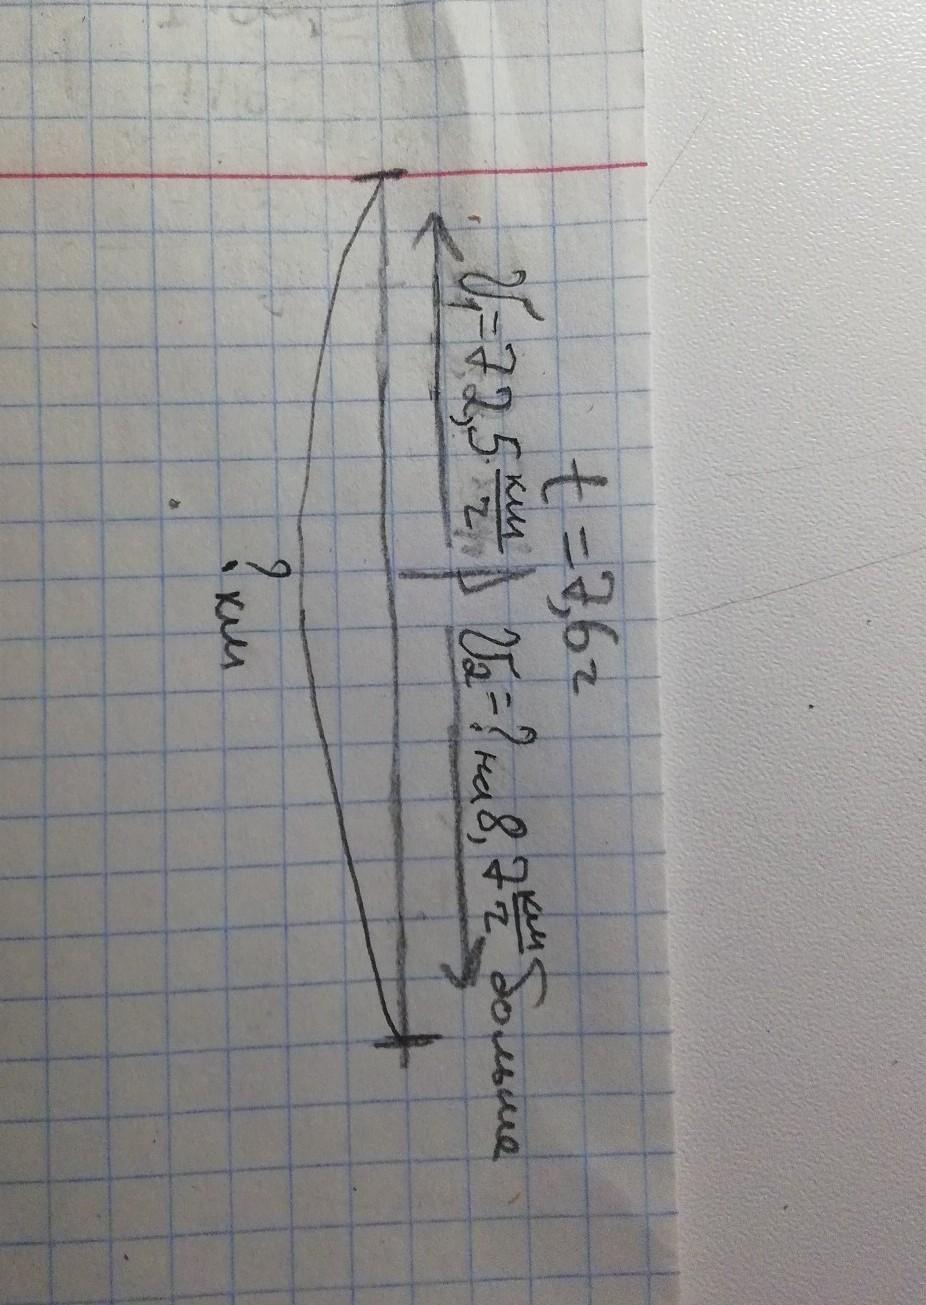 t = 7,6 ч
V₁ = 72,5 км/ч V₂ = ? на 8,7 км/ч больше
? км